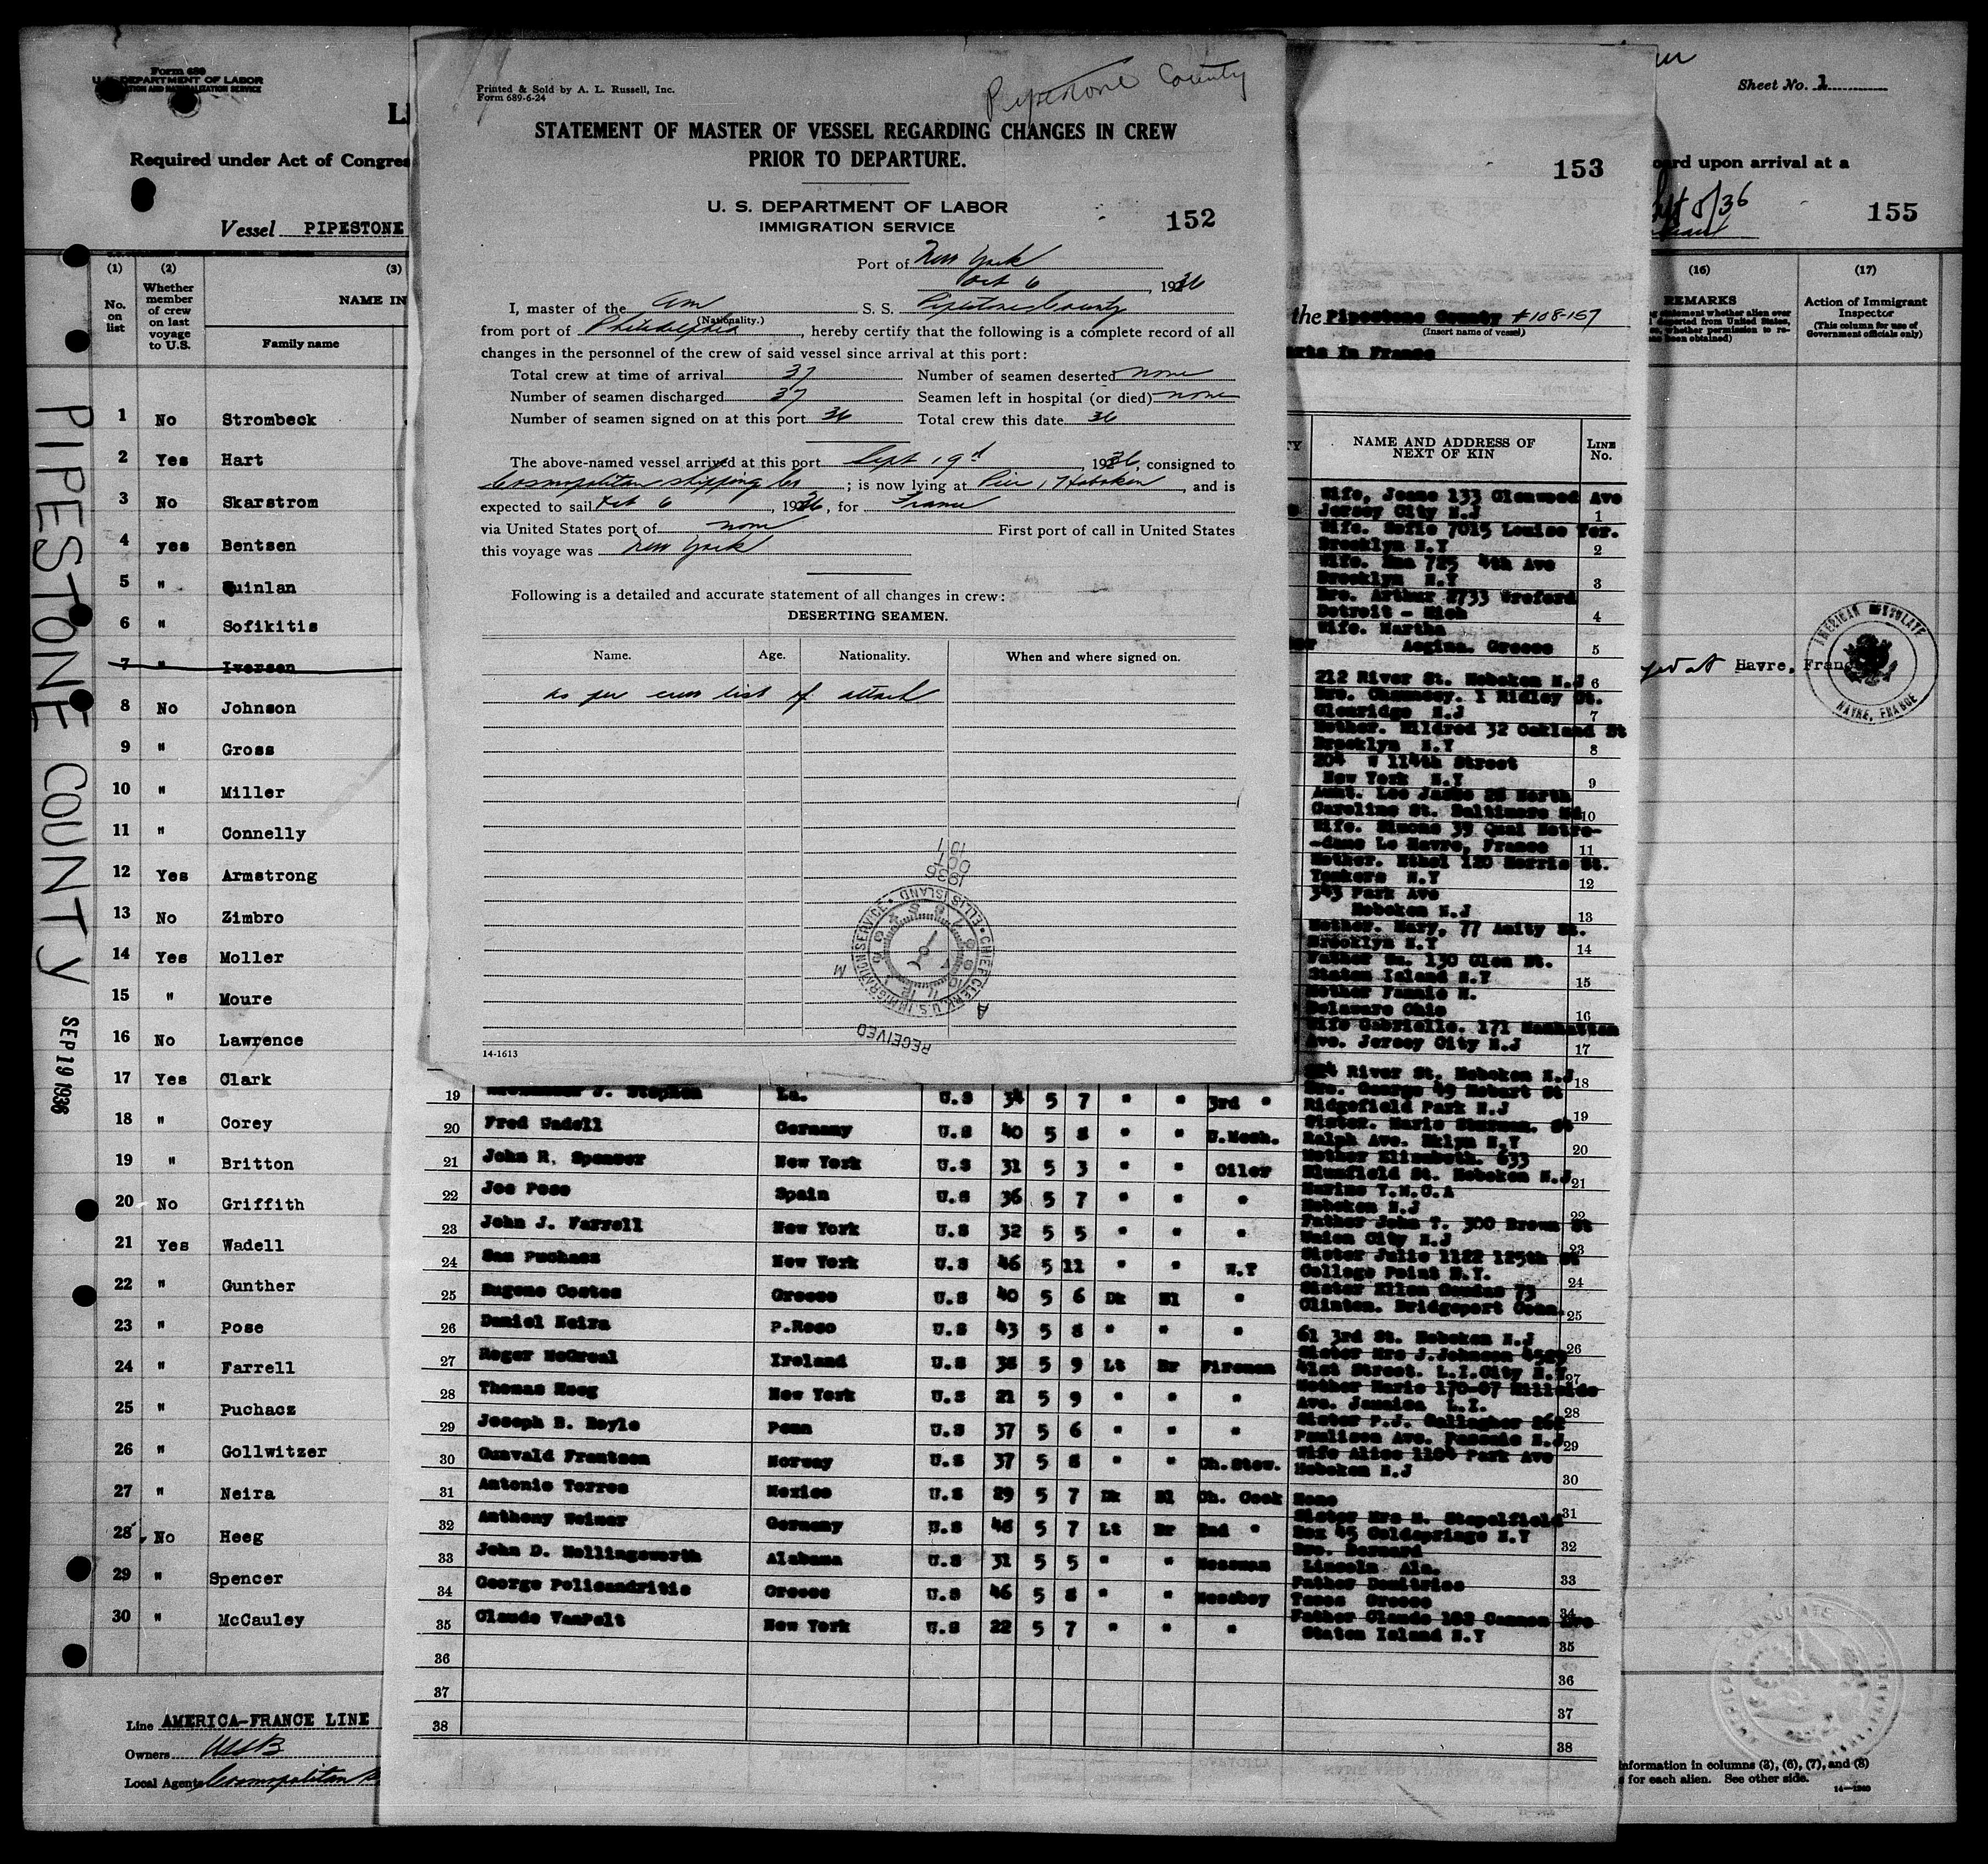 Form 689
U. S. DEPARTMENT OF LABOR
Required under Act of Congres
Vessel PIPESTONE
(1) (2) (3)
No. on list
Whether member of crew on last voyage to U.S.
NAME IN
Family name
1 No Strombeck
2 Yes Hart
3 No Skarstrom
4 yes Bentsen
5 " Quinlan
6 " Sofikitis
7 " Iversen
8 No Johnson
9 " Gross
10 " Miller
11 " Connelly
12 Yes Armstrong
13 No Zimbro
14 Yes Moller
15 " Moure
16 No Lawrence
17 Yes Clark
18 " Corey
19 " Britton
20 No Griffith
21 Yes Wadell
22 " Gunther
23 " Pose
24 " Farrell
25 " Puchacz
26 " Gollwitzer
27 " Neira
28 No Heeg
29 " Spencer
30 " McCauley
PIPESTONE COUNTY
SEP 19 1936
Line AMERICA-FRANCE LINE
Owners
Local Agents Cosmopolitan
Printed & Sold by A. L. Russell, Inc.
Form 689-6-24
Pipestone County
STATEMENT OF MASTER OF VESSEL REGARDING CHANGES IN CREW
PRIOR TO DEPARTURE.
U. S. DEPARTMENT OF LABOR
IMMIGRATION SERVICE
152
Port of New York
Oct 6, 1936
I, master of the Am S. S. Pipestone County
(Nationality.)
from port of Philadelphia, hereby certify that the following is a complete record of all
changes in the personnel of the crew of said vessel since arrival at this port:
Total crew at time of arrival 37 Number of seamen deserted none
Number of seamen discharged 37 Seamen left in hospital (or died) none
Number of seamen signed on at this port 36 Total crew this date 36
The above-named vessel arrived at this port Sept 19, 1936, consigned to
Cosmopolitan Shipping Co; is now lying at Pier 1 Hoboken, and is
expected to sail Oct 6, 1936, for France
via United States port of none First port of call in United States
this voyage was New York
Following is a detailed and accurate statement of all changes in crew:
DESERTING SEAMEN.
Name. Age. Nationality. When and where signed on.
as per crew list attach
RECEIVED
CHIEF CLERK, U.S. IMMIGRATION SERVICE • ELLIS ISLAND
1936 OCT
14-1613
153
the Pipestone County #108-157
(Insert name of vessel)
In France
NAME AND ADDRESS OF NEXT OF KIN
LINE No.
Wife, Jeane 133 Glenwood Ave
Jersey City N.J 1
Wife. Sofie 7015 Louise Ter.
Brooklyn N.Y 2
Wife. Ena 725 4th Ave
Brooklyn N.Y 3
Bro. Arthur 2733 Wreford
Detroit - Mich 4
Wife. Martha
Aegina. Greece 5
212 River St. Hoboken N.J 6
Bro. Chauncey. 1 Ridley St.
Glenridge N.J 7
Mother. Mildred 32 Oakland St
Brooklyn N.Y 8
204 W 114th Street
New York N.Y 9
Aunt. Lee 28 North
Caroline St. Baltimore Md 10
Wife. Simone 39 Quai Notre-
-dame Le Havre, France 11
Mother. Ethel 120 Morris St.
Yonkers N.Y 12
343 Park Ave
Hoboken N.J 13
Mother. Mary, 77 Amity St.
Brooklyn N.Y 14
Father Wm. 130 Glen St.
Staten Island N.Y 15
Mother Fannie M.
Delaware Ohio 16
Wife Gabrielle. 171 Manhattan
Ave. Jersey City N.J 17
River St. Hoboken N.J 18
Bro. George 49 Hobart St
19 J. Stephen La. U.S 34 5 7 " " 3rd " Ridgefield Park N.J 19
Sister. Marie
20 Fred Wadell Germany U.S 40 5 8 " " U.Mesh. Ralph Ave. Bklyn N.Y 20
Mother Elizabeth. 633
21 John R. Spencer New York U.S 31 5 3 " " Oiler Blumfield St. Hoboken N.J 21
Marine Y.M.C.A
22 Joe Pose Spain U.S 36 5 7 " " " Hoboken N.J 22
Father John T. 300 Brown St
23 John J. Farrell New York U.S 32 5 5 " " " Union City N.J 23
Sister Julie 1122 125th St
24 Sam Puchacz New York U.S 46 5 11 " " W.T College Point N.Y. 24
Sister Ellen 73
25 Eugene Costas Greece U.S 40 5 6 Dk Bl " Clinton. Bridgeport Conn. 25
26 Daniel Neira P.Rico U.S 43 5 8 " " " 61 3rd St. Hoboken N.J 26
Sister Mrs J.Johnson
27 Roger McGreal Ireland U.S 38 5 9 Lt Br Fireman 41st Street. L.I.City N.Y 27
Mother Marie 170-07 Hillside
28 Thomas Heeg New York U.S 21 5 9 " " " Ave. Jamaica L.I. 28
Sister P.J. Gallagher 262
29 Joseph B. Boyle Penn U.S 37 5 6 " " " Paulison Ave. Passaic N.J 29
Wife Alice 1104 Park Ave
30 Gunvald Frantsen Norway U.S 37 5 8 " " Ch.Stew. Hoboken N.J 30
31 Antonio Torres Mexico U.S 29 5 7 Dk Bl Ch. Cook None 31
Sister Mrs M. Stapelfield
32 Anthony Weiner Germany U.S 46 5 7 Lt Br 2nd " Box 45 Coldsprings N.Y 32
Bro. Bernard
33 John D. Hollingsworth Alabama U.S 31 5 5 " " Messman Lincoln Ala. 33
Father Demitrios
34 George Policandritis Greece U.S 46 5 8 " " Messboy Greece 34
Father Claude Cannon Ave
35 Claude VanPelt New York U.S 22 5 7 " " " Staten Island N.Y 35
36 36
37 37
38 38
Sheet No. 1
oard upon arrival at a
5/36
155
(16) (17)
REMARKS
Action of Immigrant Inspector
(This column for use of Government officials only)
Havre, Fran
AMERICAN CONSULATE
HAVRE, FRANCE
AMERICAN CONSULATE
information in columns (3), (6), (7), and (8)
for each alien. See other side.